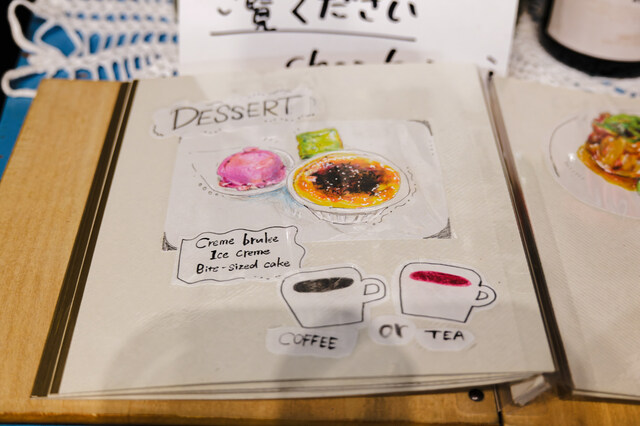 ご覧ください
DESSERT
Creme brulee
Ice creme
Bite-sized cake
COFFEE or TEA